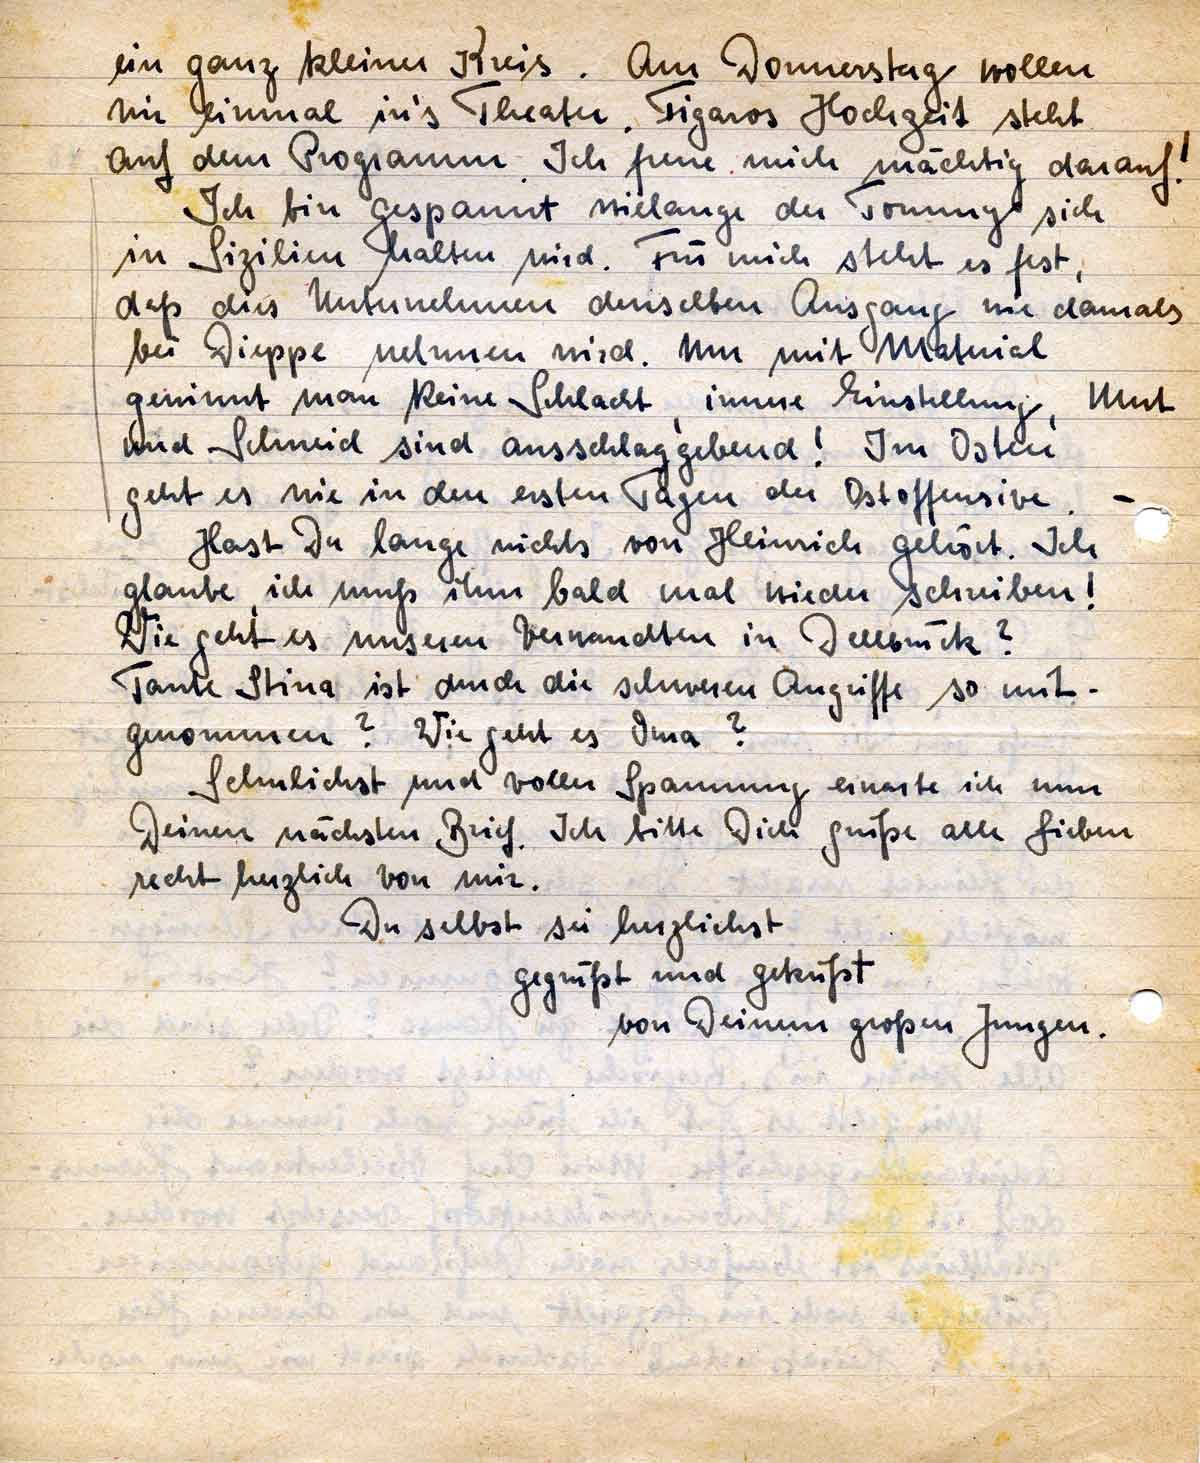 ein ganz kleiner Kreis. Am Donnerstag wollen
wir einmal in's Theater. Figaros Hochzeit steht
auf dem Programm. Ich freue mich mächtig darauf!
Ich bin gespannt wielange der Tommy sich
in Sizilien halten wird. Für mich steht es fest,
daß dies Unternehmen denselben Ausgang wie damals
bei Dieppe nehmen wird. Nur mit Material
gewinnt man keine Schlacht, innere Einstellung, Mut
und Schneid sind ausschlaggebend! Im Osten
geht es wie in den ersten Tagen der Ostoffensive. -
Hast Du lange nichts von Heinrich gehört. Ich
glaube, ich muß ihm bald mal wieder schreiben!
Wie geht es unseren Verwandten in Dellbrück?
Tante Stina ist durch die schweren Angriffe so mit-
genommen? Wie geht es Oma?
Sehnlichst und voller Spannung erwarte ich nun
Deinen nächsten Brief. Ich bitte Dich grüße alle Lieben
recht herzlich von mir.
Du selbst sei herzlichst
gegrüßt und geküßt
von Deinem großen Jungen.